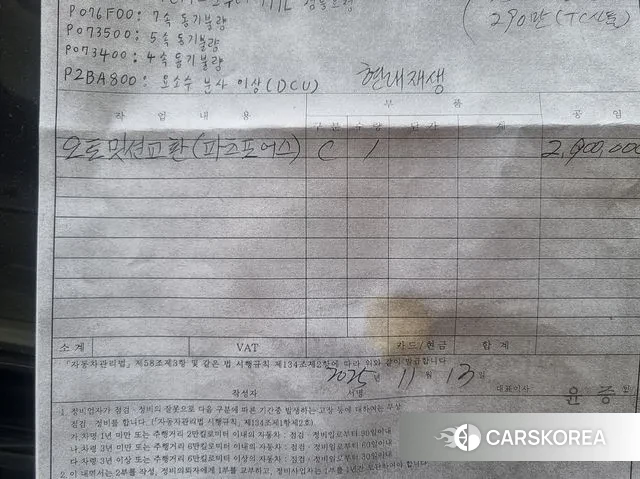 P076F00: 7속 동기불량
290만 (TC신품)
P073500: 5속 동기불량
P073400: 4속 동기불량
P2BA800: 요소수 분사 이상(DCU)
현대재생
작 업 내 용
부 품
공 임
구 분 수 량 단 가 계
오토밋션교환(파츠포어스) C 1
소 계 VAT 카드/현금 합 계
「자동차관리법」 제58조제3항 및 같은 법 시행규칙 제134조제2항에 따라 위와 같이 발급합니다
2025년 11월 13일
작성자 서명 대표이사 윤
1. 정비업자가 점검ㆍ정비의 잘못으로 다음 구분에 따른 기간중 발생하는 고장 등에 대하여는 무상
점검ㆍ정비를 합니다. (「자동차관리법 시행규칙」 제134조제1항제2호)
가. 차령 1년 미만 또는 주행거리 2만킬로미터 이내의 자동차 : 점검ㆍ정비일로부터 90일이내
나. 차령 3년 미만 또는 주행거리 6만킬로미터 이내의 자동차 : 점검ㆍ정비일로부터 60일이내
다. 차령 3년 이상 또는 주행거리 6만킬로미터 이상의 자동차 : 점검ㆍ정비일로부터 30일이내
2. 이 내역서는 2부를 작성, 정비의뢰자에게 1부를 교부하고, 정비사업자는 1부를 1년간 보관하여야 합니다.
CARSKOREA